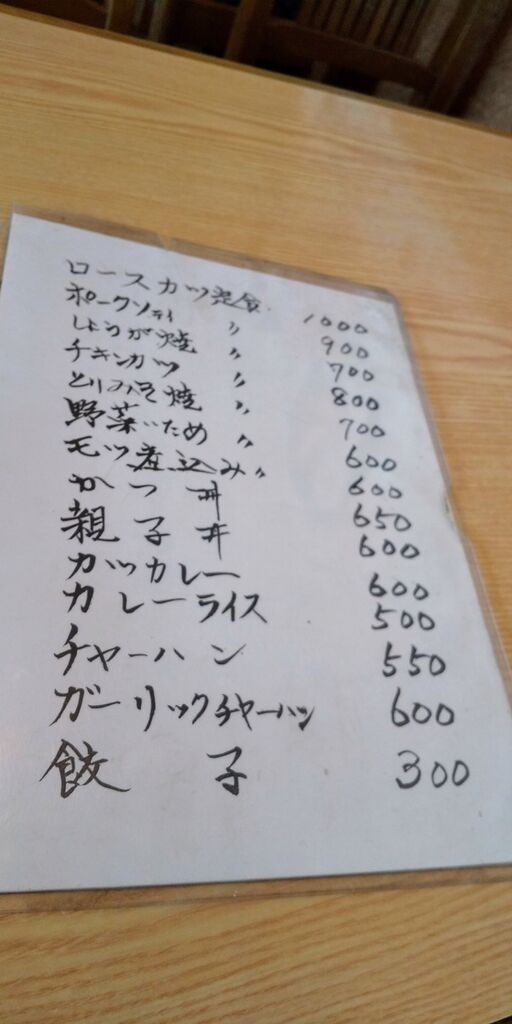 ロースカツ定食 1000
ポークソテー 〃 900
しょうが焼 〃 700
チキンカツ 〃 800
とりみそ焼 〃 700
野菜いため 〃 600
モツ煮込み 〃 600
かつ丼 650
親子丼 600
カツカレー 600
カレーライス 500
チャーハン 550
ガーリックチャーハン 600
餃子 300